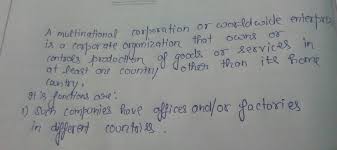 A multinational corporation or worldwide enterprise
is a corporate organization that owns or
controls production of goods or services in
at least one country other than its home
country.
It's fonctions are:
1) Such companies have offices and/or factories
in different countries.